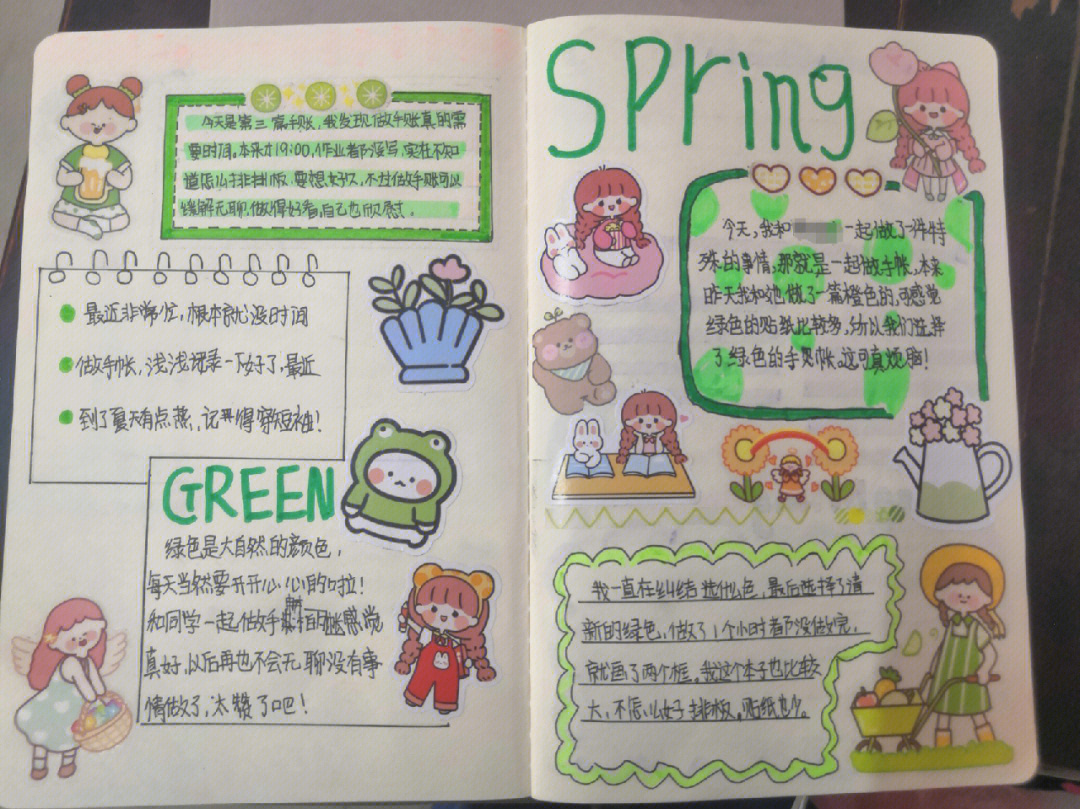 今天是第三篇手账，我发现做手账真的需
要时间。本来才19:00，作业都没写，实在不知
道怎么排版，要想好久，不过做手账可以
缓解无聊，做得好看，自己也欣慰。
最近非常忙，根本就没时间
做手帐，浅浅记录一下好了，最近
到了夏天有点燕，记开得穿短袖！
GREEN
绿色是大自然的颜色，
每天当然要开开心心的啦！
和同学一起做手帐的感觉
真好，以后再也不会无聊没有事
情做了，太赞了吧！
Spring
今天，我和 一起做了一件特
殊的事情，那就是一起做手帐，本来
昨天我和她做了一篇橙色的，可感觉
绿色的贴纸比较多，所以我们选择
了绿色的手账帐。这可真烦脑！
我一直在纠结选什么色，最后选择了清
新的绿色，做了1个小时都没做完，
就画了两个框。我这个本子也比较
大，不怎么好排版。贴纸也少。